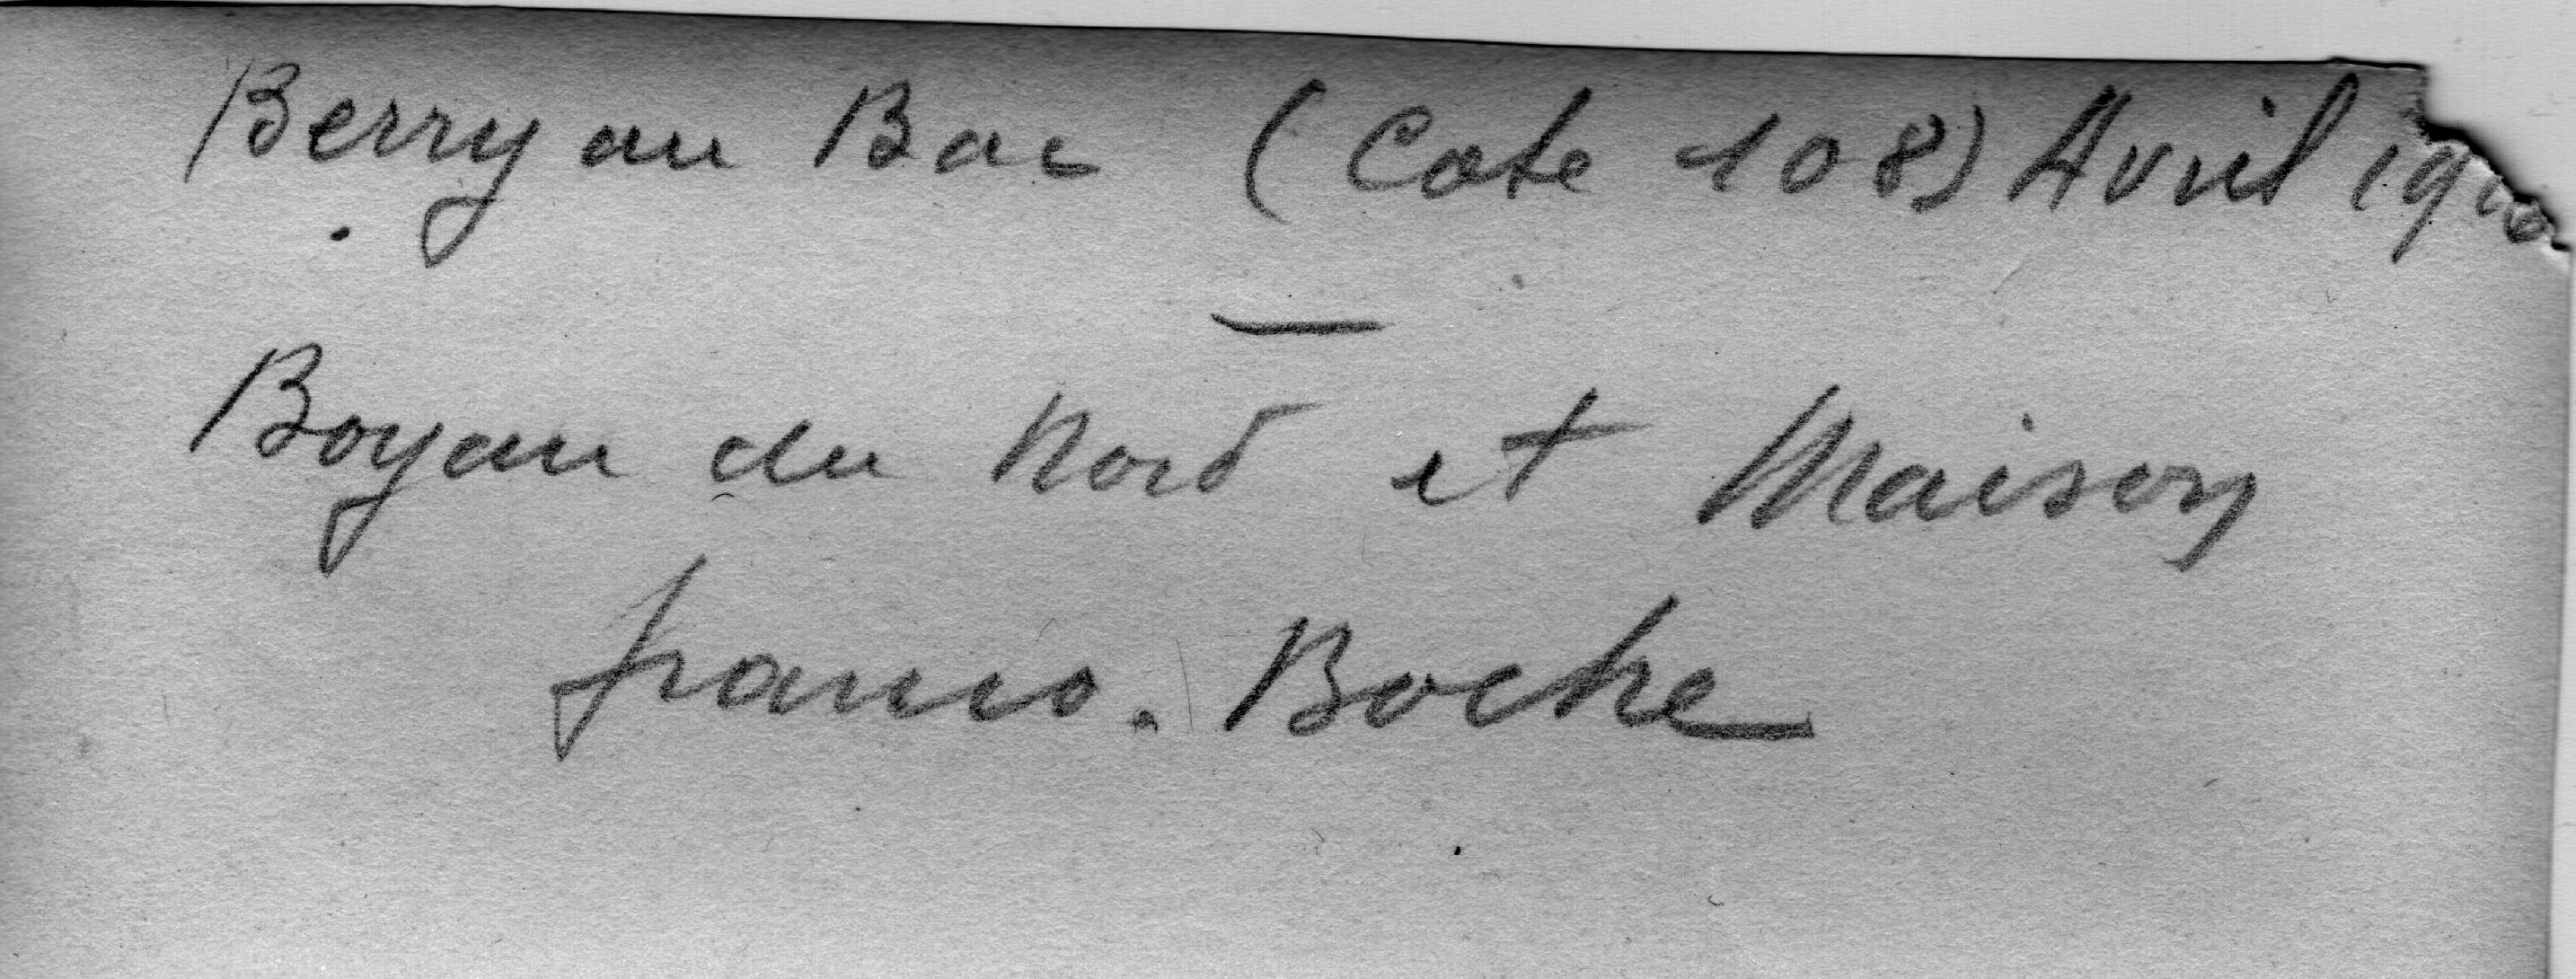 Berry au Bac (Cote 108) Avril 1916
—
Boyau du Nord et Maison
franco. Boche